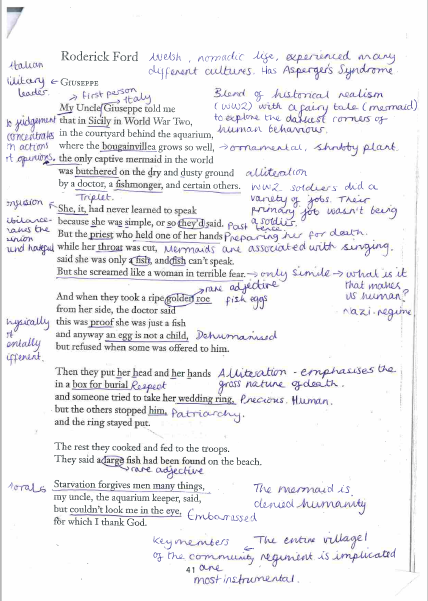 Roderick Ford
Welsh, nomadic life, experienced many
different cultures. Has Asperger's Syndrome.
Italian
military ← GIUSEPPE
leader.
→ First person
→ Italy
My Uncle Giuseppe told me
that in Sicily in World War Two,
in the courtyard behind the aquarium,
where the bougainvillea grows so well, → ornamental, shrubby plant.
the only captive mermaid in the world
was butchered on the dry and dusty ground
by a doctor, a fishmonger, and certain others.
Blend of historical realism
(WW2) with a fairy tale (mermaid)
to explore the darkest corners of
human behaviour.
judgement
concentrates
actions
opinions,
alliteration
Triplet.
WW2 soldiers did a
variety of jobs. Their
primary job wasn't being
a soldier.
She, it, had never learned to speak
because she was simple, or so they'd said. Past tense
But the priest who held one of her hands Preparing her for death.
while her throat was cut, Mermaids are associated with singing.
said she was only a fish, and fish can't speak.
But she screamed like a woman in terrible fear. → only simile → what is it
that makes
us human?
Nazi regime.
→ rare adjective
And when they took a ripe golden roe fish eggs
from her side, the doctor said
this was proof she was just a fish
and anyway an egg is not a child, Dehumanised
but refused when some was offered to him.
Then they put her head and her hands Alliteration - emphasises the
in a box for burial Respect gross nature of death.
and someone tried to take her wedding ring, Precious. Human.
but the others stopped him, Patriarchy.
and the ring stayed put.
The rest they cooked and fed to the troops.
They said a large fish had been found on the beach.
→ rare adjective
Starvation forgives men many things,
my uncle, the aquarium keeper, said,
but couldn't look me in the eye, Embarrassed
for which I thank God.
The mermaid is
denied humanity
Key members ← The entire village/
of the community regiment is implicated
41 are
most instrumental.